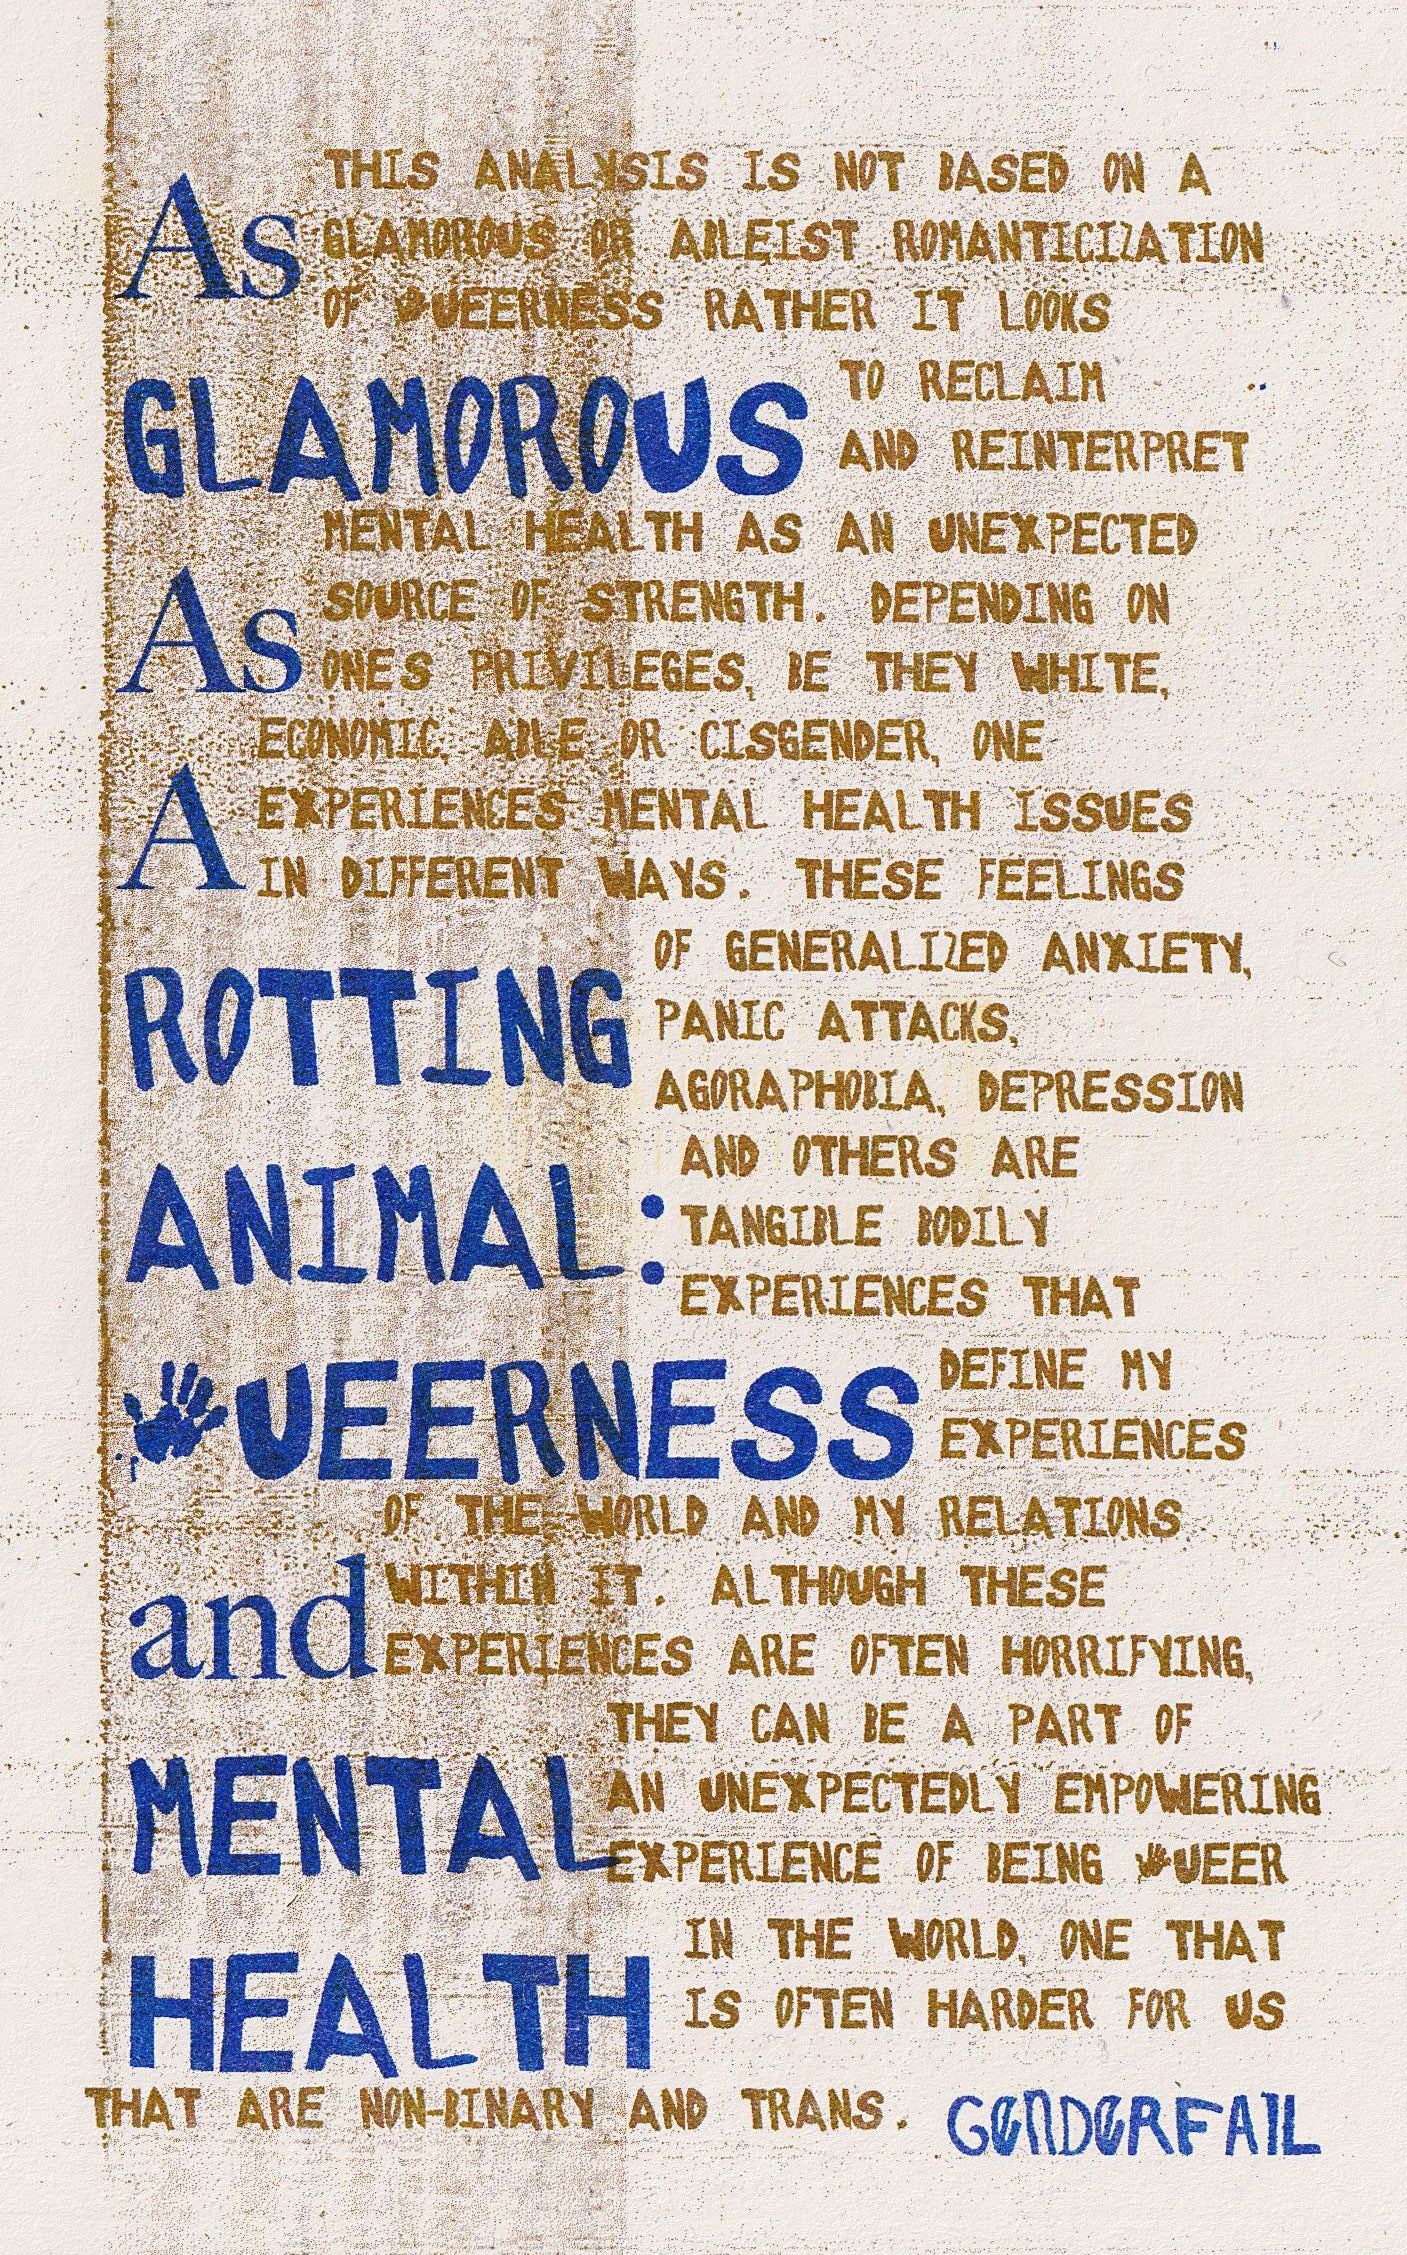 As
GLAMOROUS
As
A
ROTTING
ANIMAL:
UEERNESS
and
MENTAL
HEALTH
THIS ANALYSIS IS NOT BASED ON A
GLAMOROUS OR ABLEIST ROMANTICIZATION
OF UEERNESS RATHER IT LOOKS
TO RECLAIM
AND REINTERPRET
MENTAL HEALTH AS AN UNEXPECTED
SOURCE OF STRENGTH. DEPENDING ON
ONES PRIVILEGES, BE THEY WHITE,
ECONOMIC, ABLE OR CISGENDER, ONE
EXPERIENCES MENTAL HEALTH ISSUES
IN DIFFERENT WAYS. THESE FEELINGS
OF GENERALIZED ANXIETY,
PANIC ATTACKS,
AGORAPHOBIA, DEPRESSION
AND OTHERS ARE
TANGIBLE BODILY
EXPERIENCES THAT
DEFINE MY
EXPERIENCES
OF THE WORLD AND MY RELATIONS
WITHIN IT. ALTHOUGH THESE
EXPERIENCES ARE OFTEN HORRIFYING,
THEY CAN BE A PART OF
AN UNEXPECTEDLY EMPOWERING
EXPERIENCE OF BEING UEER
IN THE WORLD, ONE THAT
IS OFTEN HARDER FOR US
THAT ARE NON-BINARY AND TRANS.
GENDERFAIL